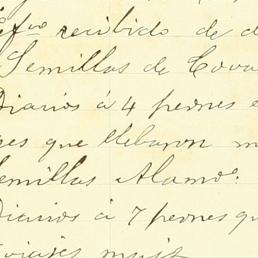 Efvo recibido de d
Semillas de Cova
Diarios á 4 peones e
es que llebaron m
emillas Alamos.
Diarios á 7 peones qu